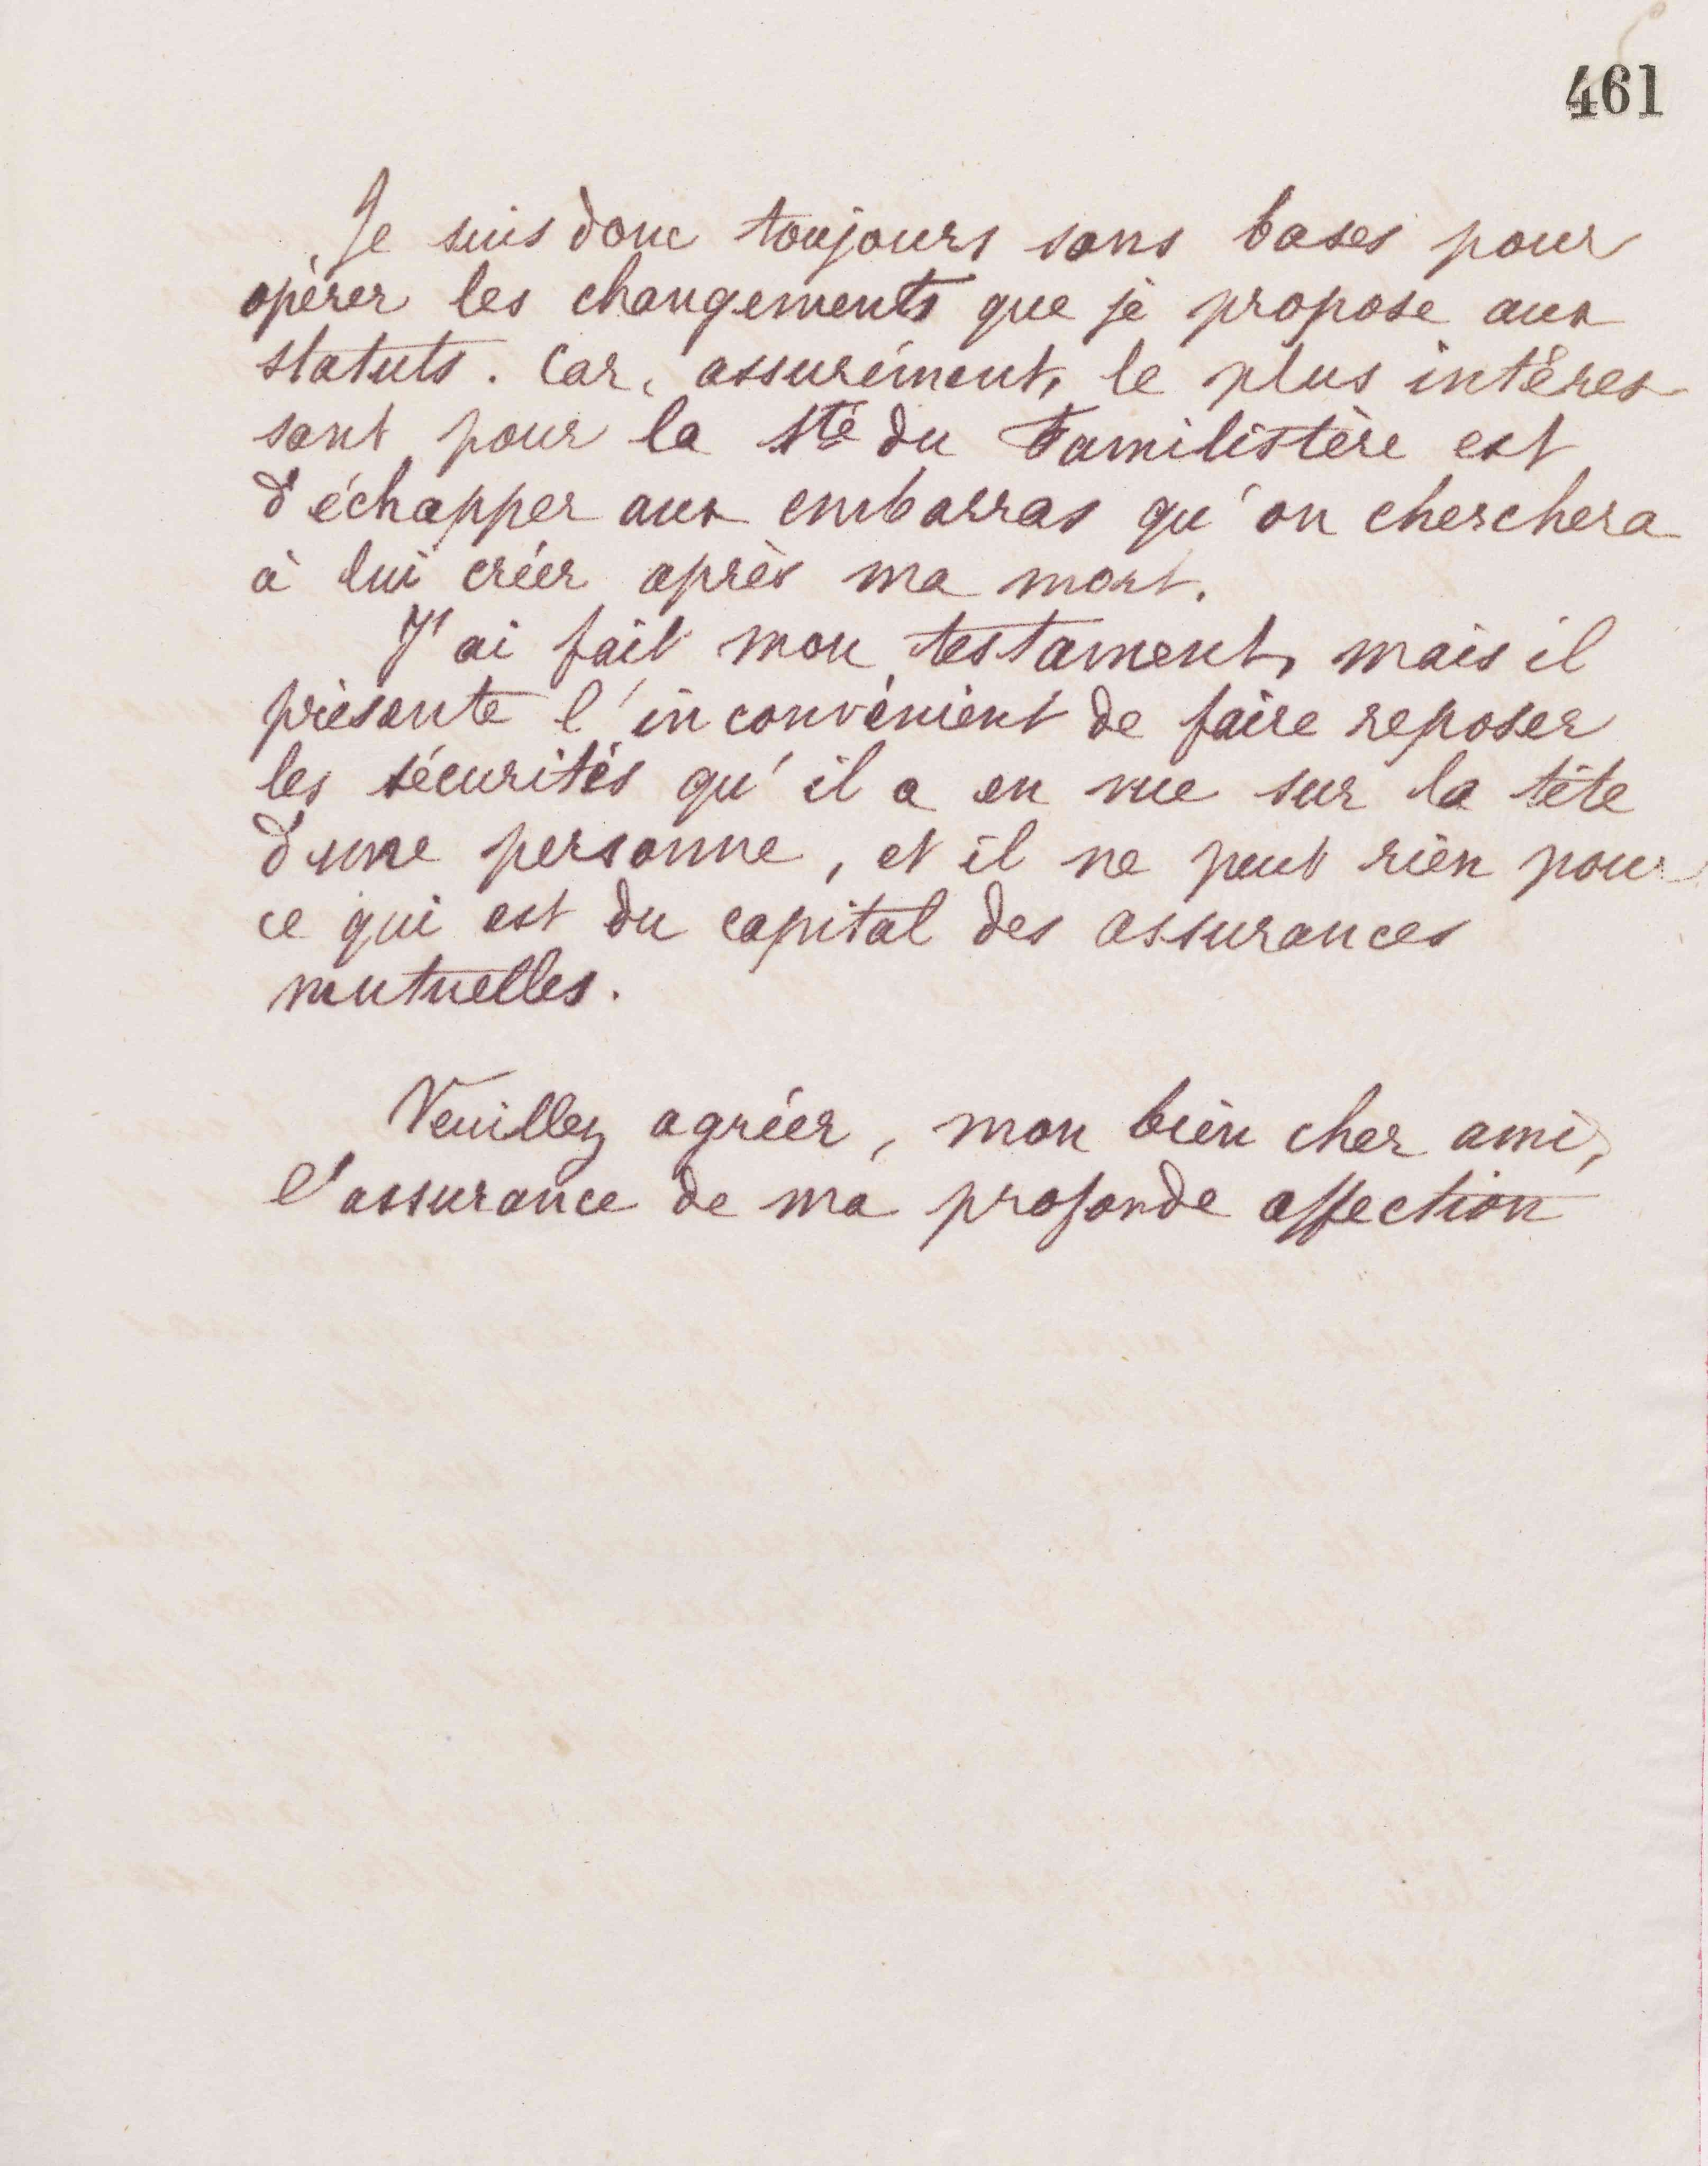 461
Je suis donc toujours sans bases pour
opérer les changements que je propose aux
statuts. Car, assurément, le plus intéres
sant pour la Sté du Familistère est
d'échapper aux embarras qu'on cherchera
à lui créer après ma mort.
J'ai fait mon testament, mais il
présente l'inconvénient de faire reposer
les sécurités qu'il a en vue sur la tête
d'une personne, et il ne peut rien pour
ce qui est du capital des assurances
mutuelles.
Veuillez agréer, mon bien cher ami,
l'assurance de ma profonde affection